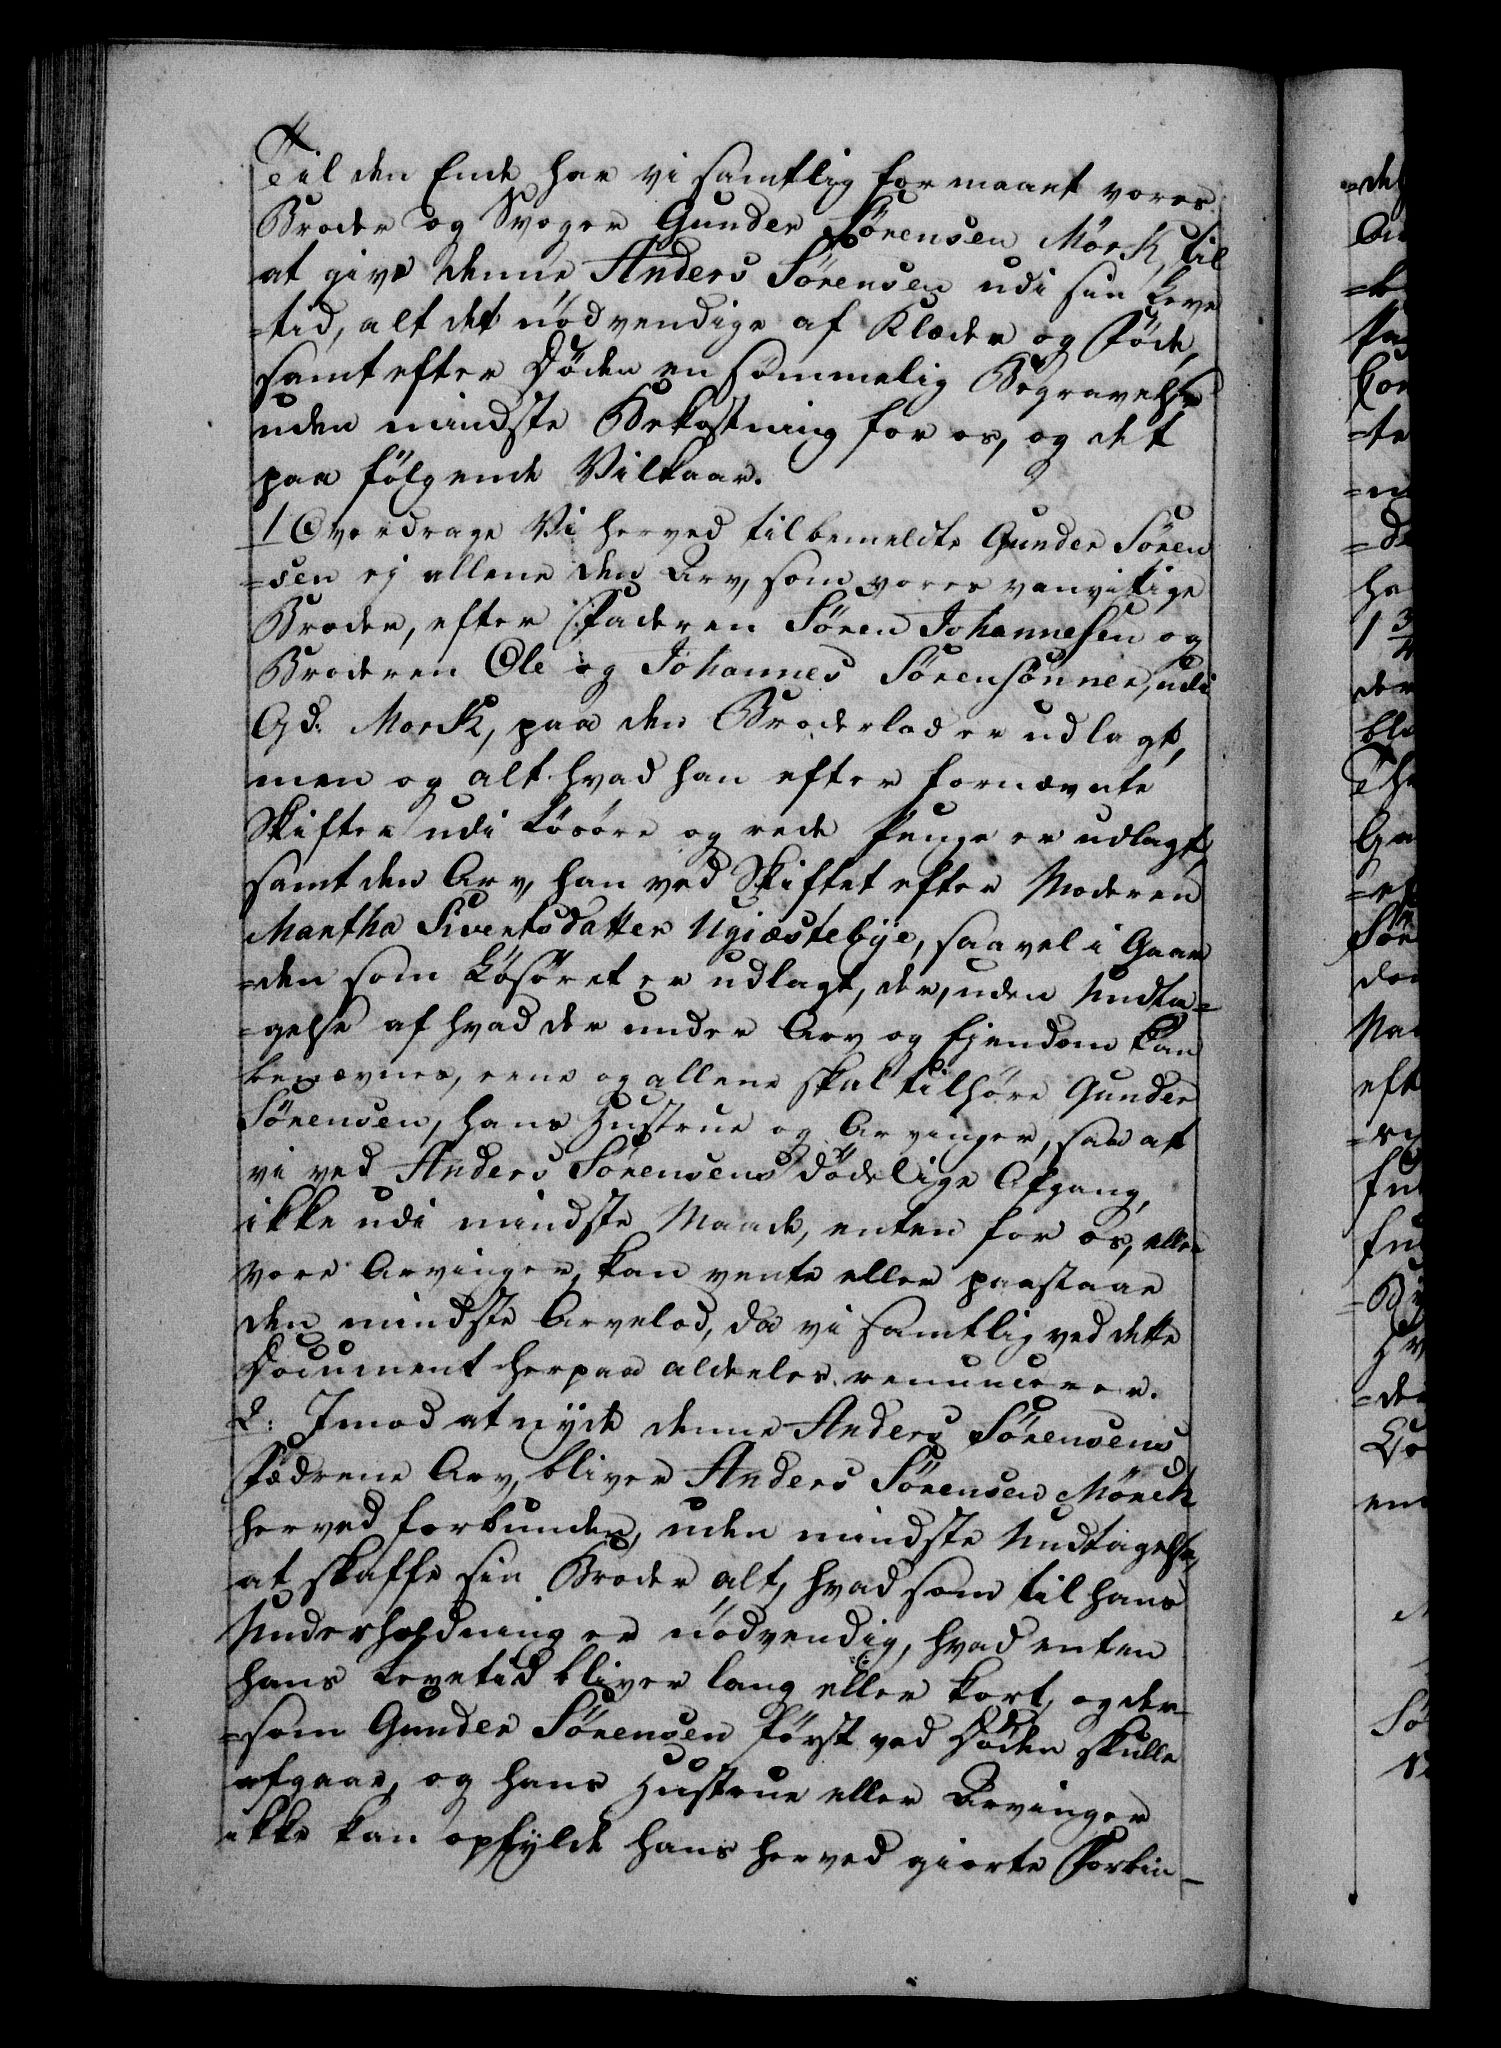 Til den Ende har vi samtlig formaaet vores
Broder og Svoger Gunder Sörensen Mörk, til
at give denne Anders Sörensen udi sin Leve
=tid, alt det nödvendige af Klæder og Föde,
samt efter Döden en sömmelig Begravelse
uden mindste Bekostning for os, og det
paa fölgende Vilkaar.
1 Overdrage Vi herved tilbemeldte Gunder Sören
=sen ej allene den Arv, som vores vanvitige
Broder, efter Faderen Sören Johannesen og
Broderen Ole og Johannes Sörensönner, udi
Gd: Mork, paa den Broderlod er udlagt,
men og alt hvad han efter fornævnte
Skifter udi Lösöre og rede Penge er udlagt,
samt den Arv, han ved Skiftet efter Moderen
Martha Sivertsdatter Ugiæstebye, saavel i Gaar
=den som Lösöret er udlagt, der, uden Undta=
=gelse af hvad der under Arv og Ejendom kan
benævnes, eene og allene skal tilhöre Gunder
Sörensen, hans Hustrue og Arvinger, saa at
vi ved Anders Sörensens dödelige Afgang,
ikke udi mindste Maade, enten for os, eller
vore Arvinger, kan vente eller paastaae
den mindste Arvelod, da vi samtlig ved dette
Document herpaa aldeeles renuncerer.
2: Imod at nyde denne Anders Sörensens
Fædrene Arv, bliver Anders Sörensen Mörch
herved forbunden, uden mindste Undtagelse,
at skaffe sin Broder alt, hvad som til hans
Underholdning er nödvendig, hvad enten
hans Levetid bliver lang eller kort, og der=
=som Gunder Sörensen först ved Döden skulle
afgaae, og hans Hustrue eller Arvinger
ikke kan opfylde hans herved giorte Forbin=